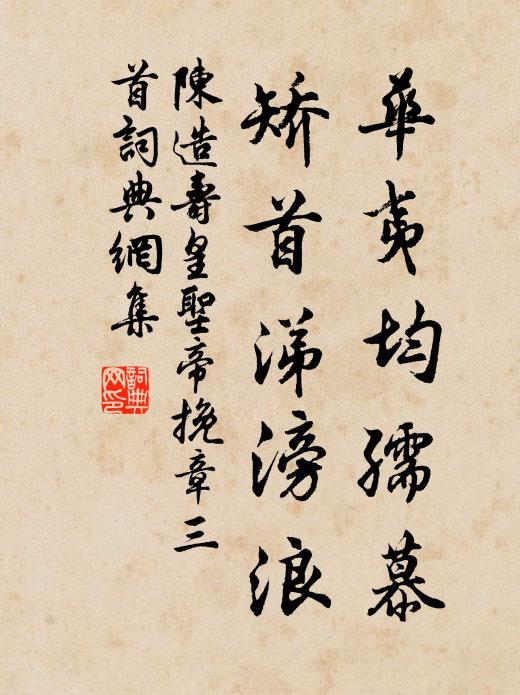 華夷均孺慕
矯首涕滂浪
陳造壽皇聖帝挽章三
首詞典網集
詞典
网印